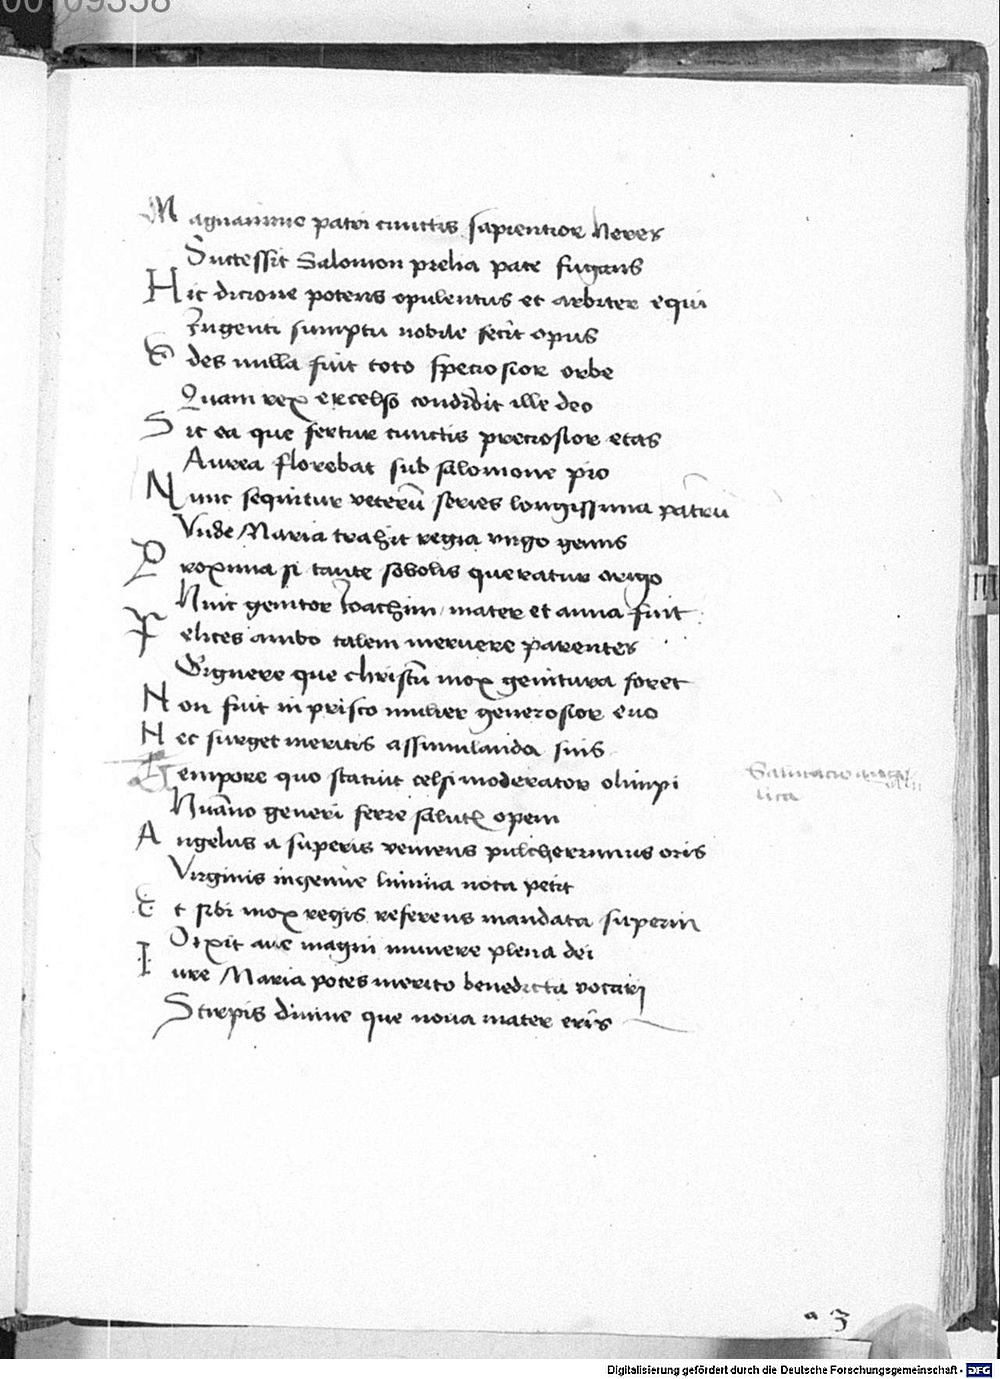 00109358
Magnanimo patri cunctis sapientior heres
Successit Salomon prelia pace fugans
Hic dicione potens opulentus et arbiter equi
Ingenti sumptu nobile fecit opus
Edes nulla fuit toto speciosior orbe
Quam rex excelso condidit ille deo
Sic ea que fertur cunctis preciosior etas
Aurea florebat sub salomone pio
Nunc sequitur veterū series longissima patrū
Unde Maria trahit regia virgo genus
Proxima si tante sobolis queratur origo
Huic genitor Ioachim mater et anna fuit
Felices ambo talem meruere parentes
Gignere que christū mox genitura foret
Non fuit in prisco mulier generosior evo
Nec surget meritis assimulanda suis
Tempore quo statuit celsi moderator olimpi
Salutacio
Huāno generi ferre salutē opem
Angelus a superis veniens pulcherrimus oris
Virginis ingenue limina nota petit
Et sibi mox regis referens mandata superni
Dixit ave magni munere plena dei
Iure Maria potes merito benedicta vocari
Stirpis divine que nova mater eris
a 3
Digitalisierung gefördert durch die Deutsche Forschungsgemeinschaft - DFG